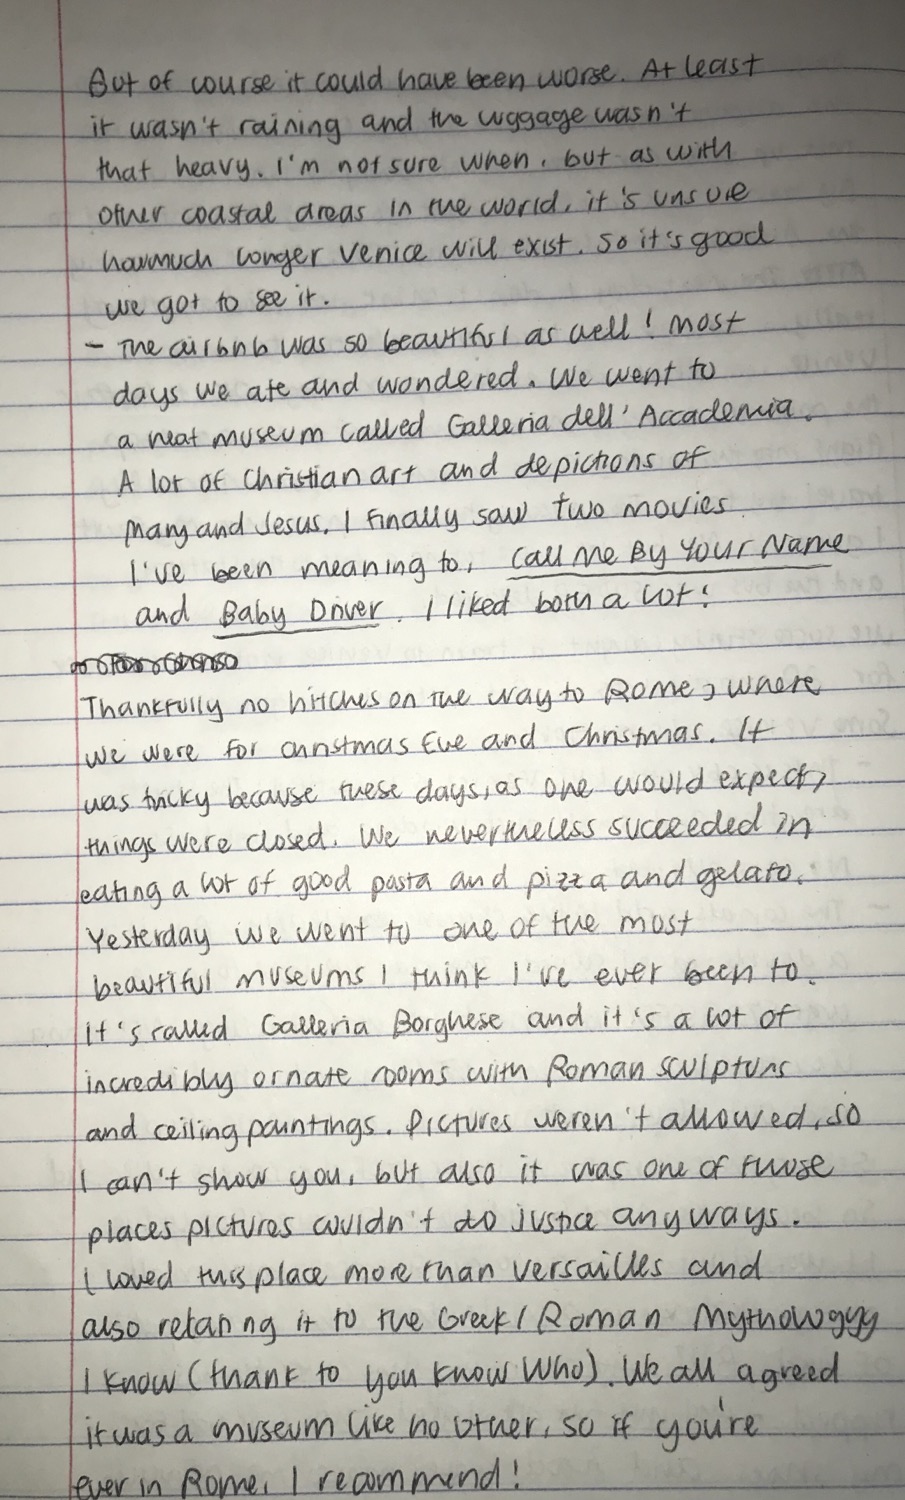 But of course it could have been worse. At least
it wasn't raining and the luggage wasn't
that heavy. I'm not sure when, but as with
other coastal areas in the world, it's unsure
howmuch longer Venice will exist. So it's good
we got to see it.
- The airbnb was so beautiful as well! Most
days we ate and wondered. We went to
a neat museum called Galleria dell' Accademia.
A lot of Christian art and depictions of
Mary and Jesus. I finally saw two movies
I've been meaning to, Call Me By Your Name
and Baby Driver. I liked both a lot!
Thankfully no hitches on the way to Rome, where
we were for Christmas Eve and Christmas. It
was tricky because these days, as one would expect,
things were closed. We nevertheless succeeded in
eating a lot of good pasta and pizza and gelato.
Yesterday we went to one of the most
beautiful museums I think I've ever been to.
It's called Galleria Borghese and it's a lot of
incredibly ornate rooms with Roman sculpturs
and ceiling paintings. Pictures weren't allowed, so
I can't show you, but also it was one of those
places pictures couldn't do justice anyways.
I loved this place more than Versailles and
also relating it to the Greek/Roman Mythology
I know (thank to you know who). We all agreed
it was a museum like no other, so if you're
ever in Rome, I recommend!